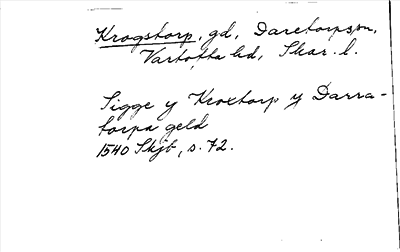 Krogstorp, gd, Daretorps sn,
Vartofta hd, Skar. l.
Sigge y Kroxtorp y Darra-
torpa geld
1540 Skjb, s. 72.